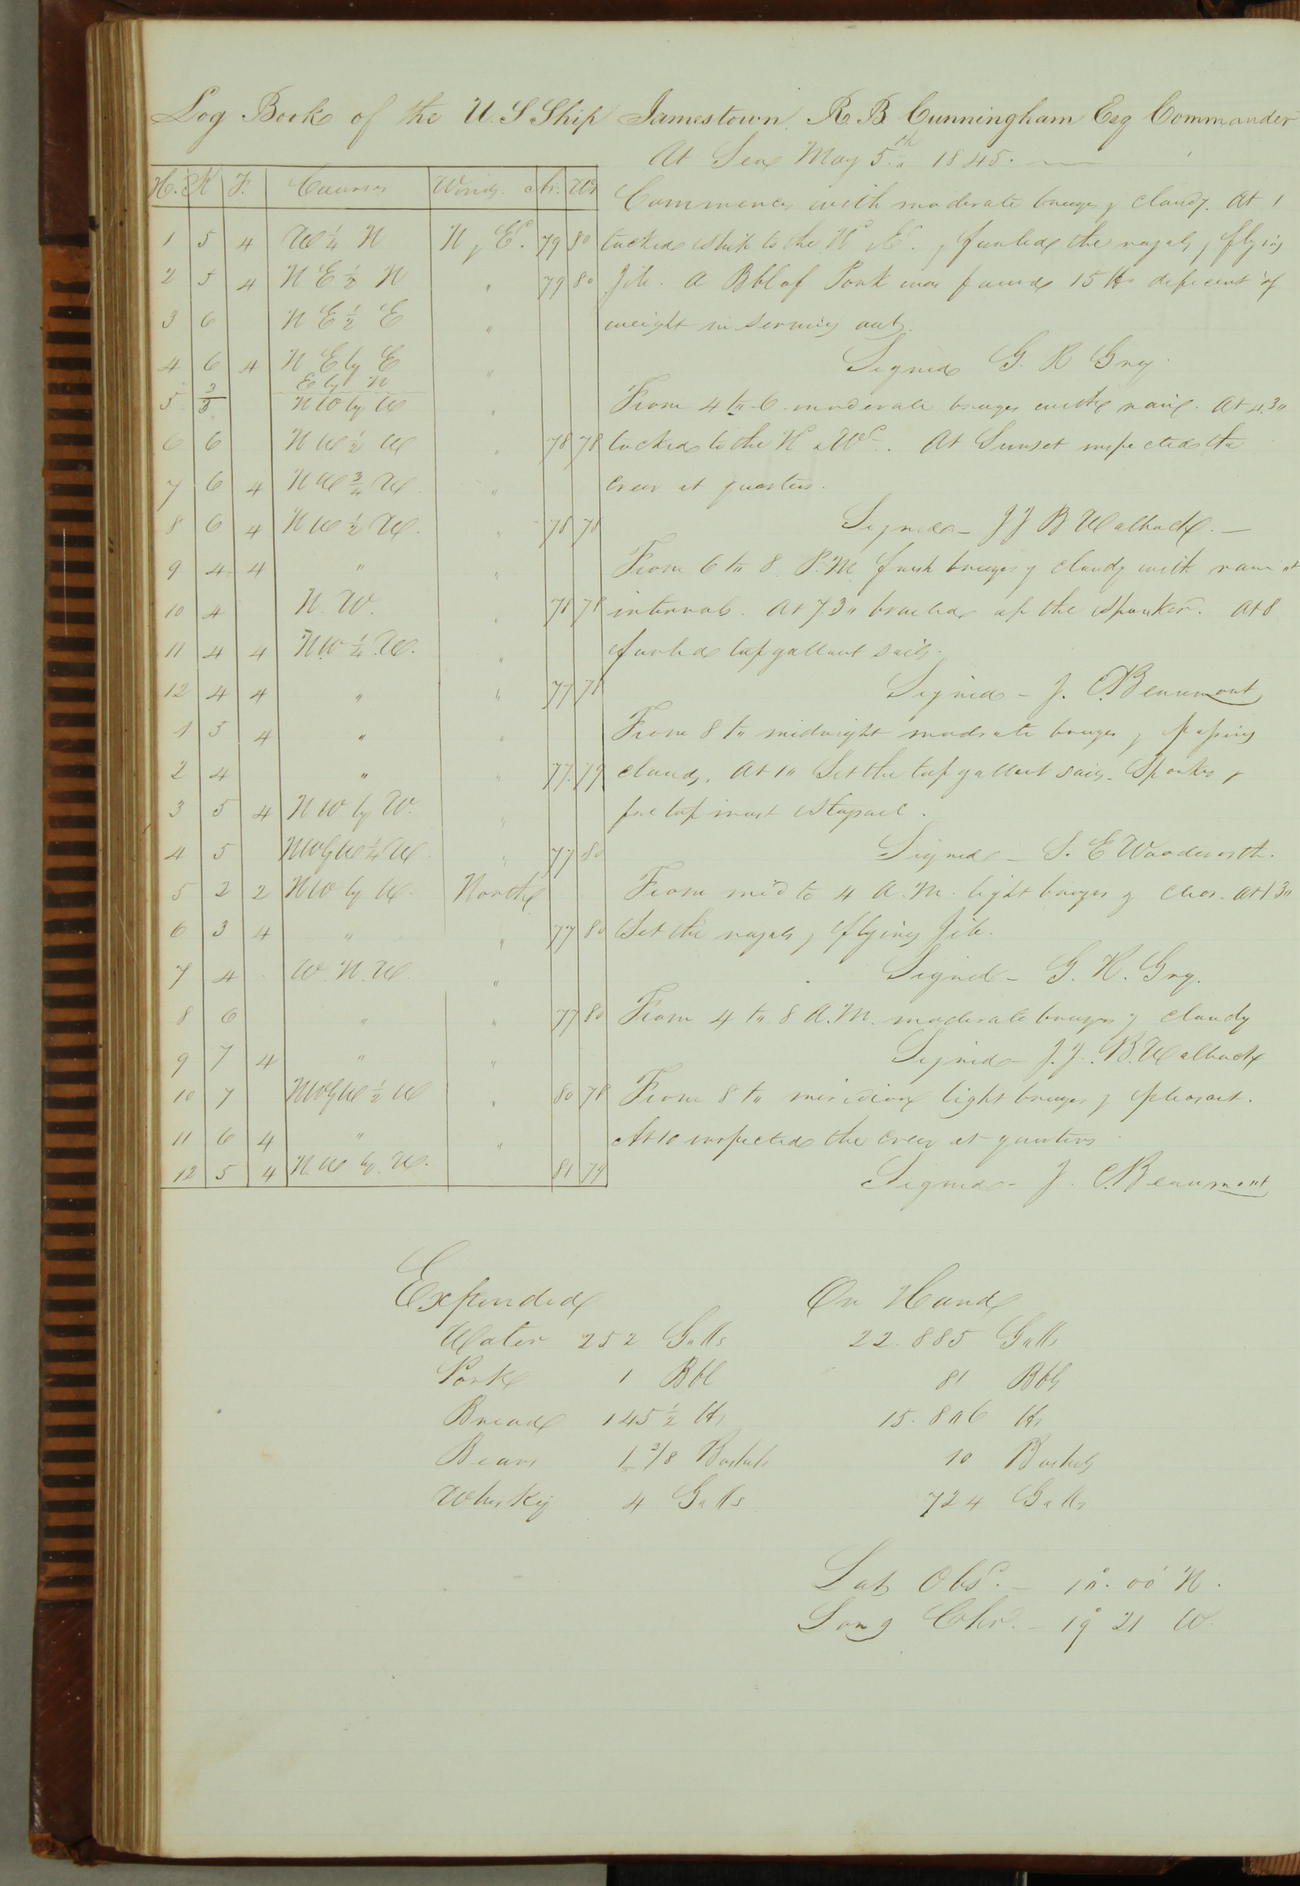 Log Book of the U.S Ship Jamestown. R. B Cunningham Esq Commander
At Sea May 5th 1845.
H. K F. Courses Winds Ar. Wr
Commences with moderate breezes & cloudy. At 1
1 5 4 W ¼ N N & E. 79 80 tacked ship to the N & E. & furled the royals & flying
2 5 4 N E ½ N " 79 80 Jib. A Bbl of Pork was found 15 lbs deficient of
3 6 N E ½ E " weight in serving out.
4 6 4 N E by E " Signed G. R Gray.
5 3/3 E by N / NW by W " From 4 to 6 moderate breezes with rain. At 4.30
6 6 N W ½ W " 78 78 tacked to the N & Wd. At Sunset inspected the
7 6 4 N W ¾ W. " crew at quarters.
8 6 4 N W ½ W. " 78 78 Signed - J J B Walbach. -
9 4 4 " " From 6 to 8 P.M. fresh breezes & cloudy with rain at
10 4 N. W. " 78 78 intervals. At 7.30 brailed up the Spanker. At 8
11 4 4 NW ¼ W. " furled top gallant sails.
12 4 4 " " 77 78 Signed - J. C. Beaumont
1 5 4 " " From 8 to midnight moderate breezes & passing
2 4 " " 77 79 clouds. At 10 Set the top gallant sails. Spanker &
3 5 4 N W by W. " fore top mast Staysail.
4 5 NWbyW ¼ W " 77 80 Signed - S. E Woodworth.
5 2 2 NW by W. North From mid to 4 A. M. light breezes & clear. At 1.30
6 3 4 " " 77 80 Set the royals & flying Jib.
7 4 W. N. W. " Signed - G. H. Gray.
8 6 " " 77 80 From 4 to 8 A. M. moderate breezes & cloudy
9 7 4 " " Signed - J. J. B. Walbach
10 7 NWbyW ½ W " 80 78 From 8 to meridian light breezes & pleasant.
11 6 4 " " At 10 inspected the crew at quarters
12 5 4 N. W by. W. 81 79 Signed - J. C. Beaumont
Expended On Hand
Water 252 Galls 22.885 Galls
Pork 1 Bbl 81 Bbls
Bread 145 ½ lbs 15.806 lbs
Beans 1 3/8 Bushels 10 Bushels
Whisky 4 Galls 724 Galls
Lat Obsd. - 10°. 00' N.
Long Chr. - 19° 21 W.